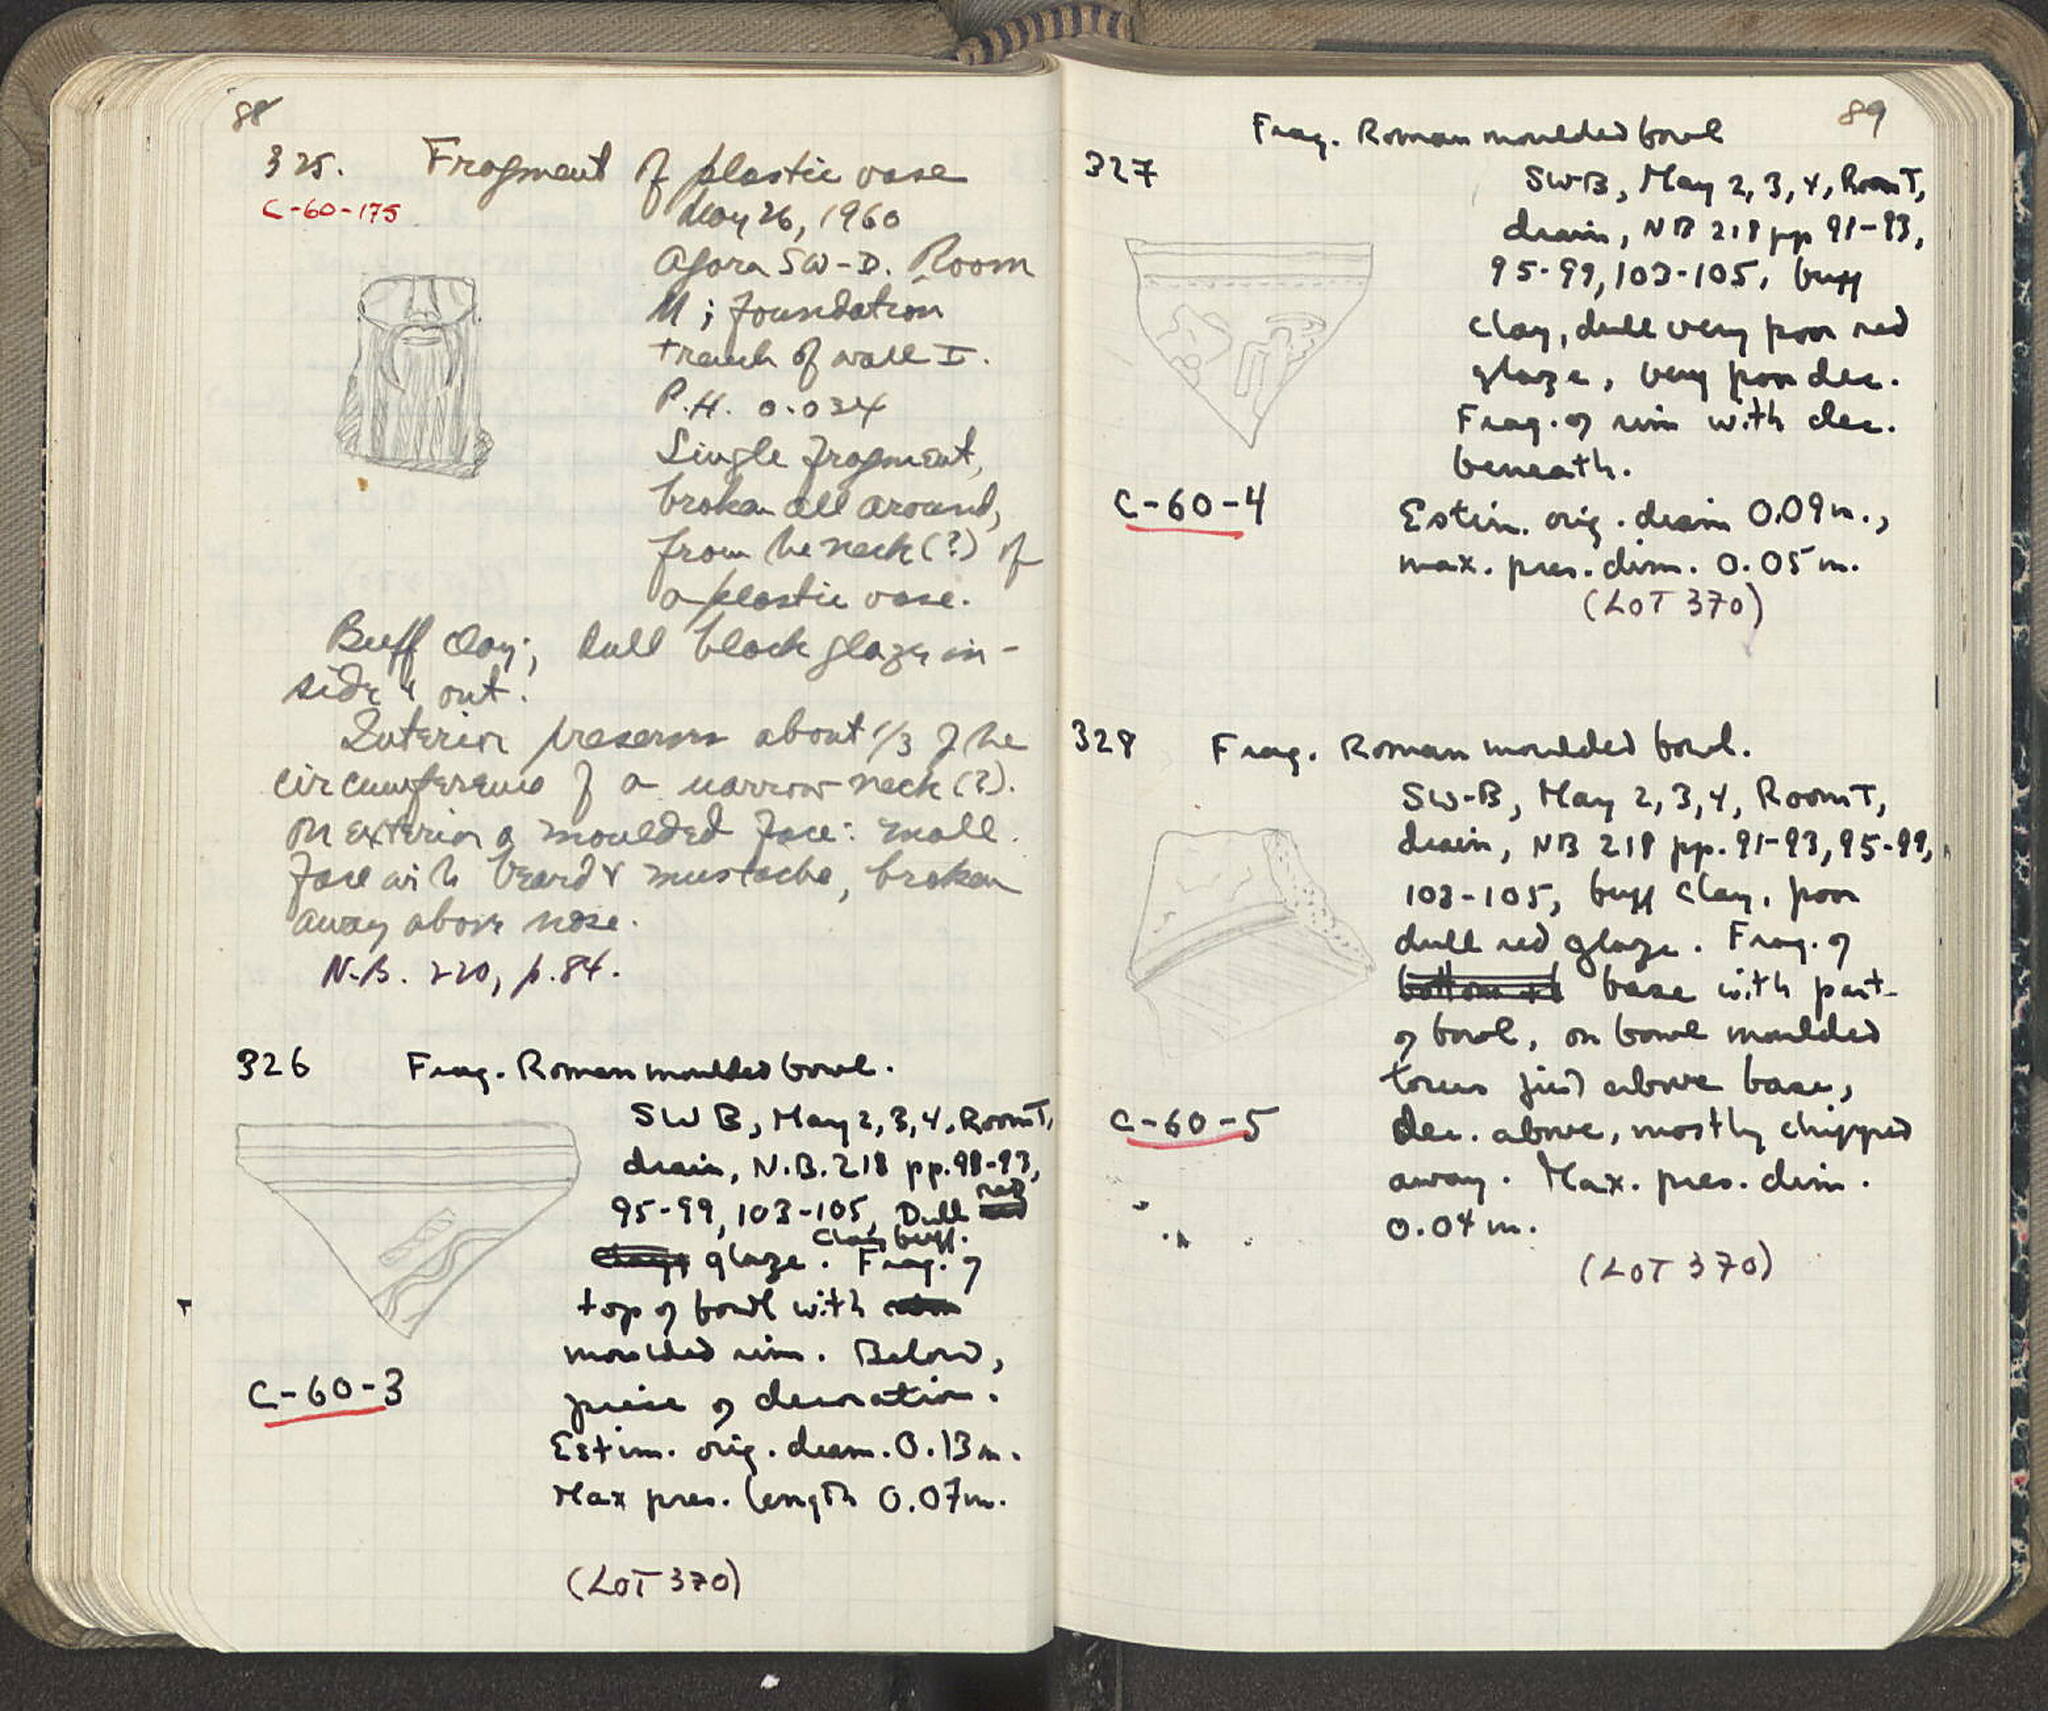 88
325. Fragment of plastic vase
C-60-175
May 26, 1960
Agora SW-D. Room
M; foundation
trench of wall I.
P.H. 0.034
Single fragment,
broken all around,
from the neck (?) of
a plastic vase.
Buff clay; dull black glaze in-
side & out.
Interior preserves about 1/3 of the
circumference of a narrow neck (?).
On exterior a moulded face: small
face with beard & mustache, broken
away above nose.
N.B. 220, p. 84.
326 Frag. Roman moulded bowl.
SW B, May 2, 3, 4, Room T,
drain, N.B. 218 pp. 91-93,
95-99, 103-105, Dull red
clay buff.
glaze. Frag. of
top of bowl with
moulded rim. Below,
piece of decoration.
C-60-3
Estim. orig. diam. 0.13 m.
Max pres. length 0.07 m.
(LOT 370)
89
Frag. Roman moulded bowl
327
SW B, May 2, 3, 4, Room T,
drain, NB 218 pp 91-93,
95-99, 103-105, buff
clay, dull very poor red
glaze, very poor dec.
Frag. of rim with dec.
beneath.
C-60-4
Estim. orig. diam 0.09 m.,
max. pres. dim. 0.05 m.
(LOT 370)
328 Frag. Roman moulded bowl.
SW-B, May 2, 3, 4, Room T,
drain, NB 218 pp. 91-93, 95-99,
103-105, buff clay, poor
dull red glaze. Frag. of
bottom base with part
of bowl, on bowl moulded
torus just above base,
C-60-5
dec. above, mostly chipped
away. Max. pres. dim.
0.04 m.
(LOT 370)